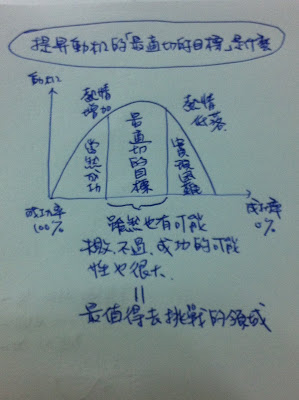 提昇動机的「最適切的目標」是什麼
動机
熱情
增加
熱情
低落
當然成功
最適切的目標
實現困難
成功率
100%
成功率
0%
雖然也有可能
失敗、不過、成功的可能
性也很大
=
最值得去挑戰的領域